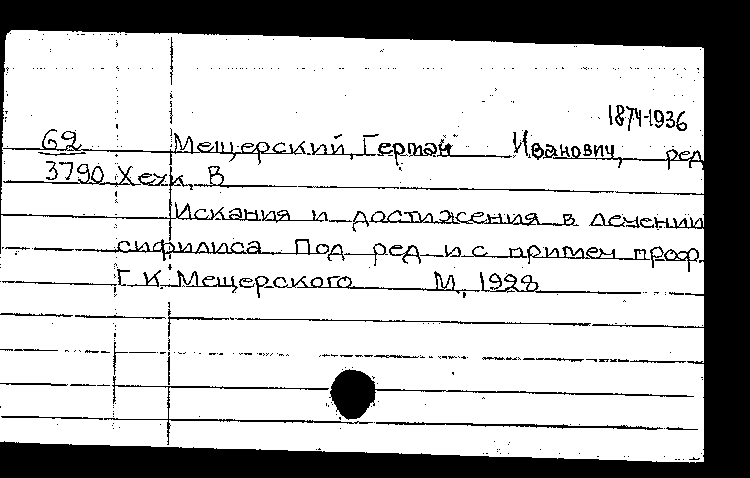 1874-1936
62 Мещерский, Герман Иванович, ред
3790 Хехк, В
Искания и достижения в лечении
сифилиса Под ред и с примеч проф.
Г. К. Мещерского М, 1928